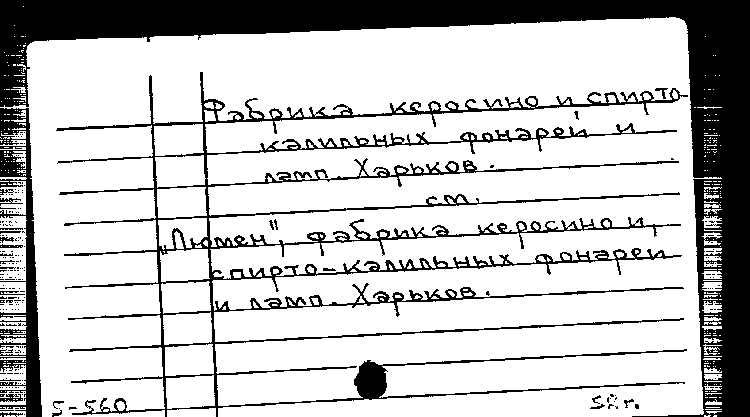 Фабрика керосино и спирто-
калильных фонарей и
ламп. Харьков.
см.
„Люмен", фабрика керосино и
спирто-калильных фонарей
и ламп. Харьков.
S-560